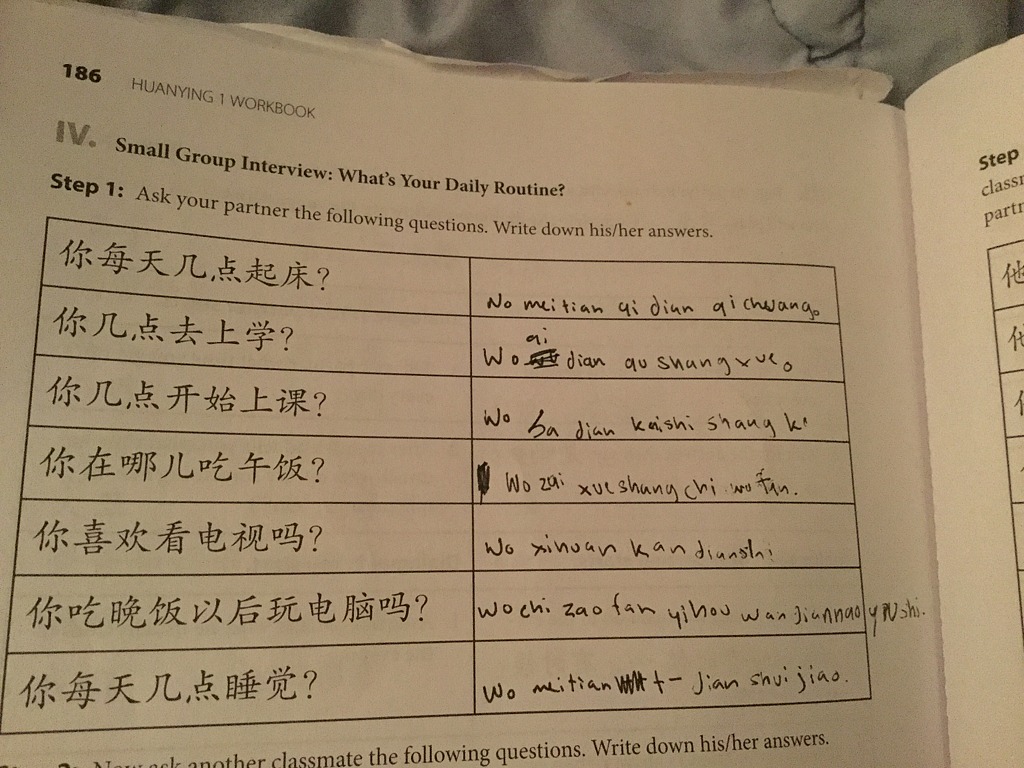 186 HUANYING 1 WORKBOOK
IV. Small Group Interview: What's Your Daily Routine?
Step 1: Ask your partner the following questions. Write down his/her answers.
你每天几点起床?
No meitian qi dian qichuang。
你几点去上学?
qi
Wo dian qu shangxue。
你几点开始上课?
Wo ba dian kaishi shang ke
你在哪儿吃午饭?
Wo zai xueshang chi wu fan.
你喜欢看电视吗?
Wo xihuan kan dianshi
你吃晚饭以后玩电脑吗?
Wo chi zao fan yihou wan diannao
你每天几点睡觉?
Wo meitian dian shuijiao.
Now ask another classmate the following questions. Write down his/her answers.
Step
classm
partn
他